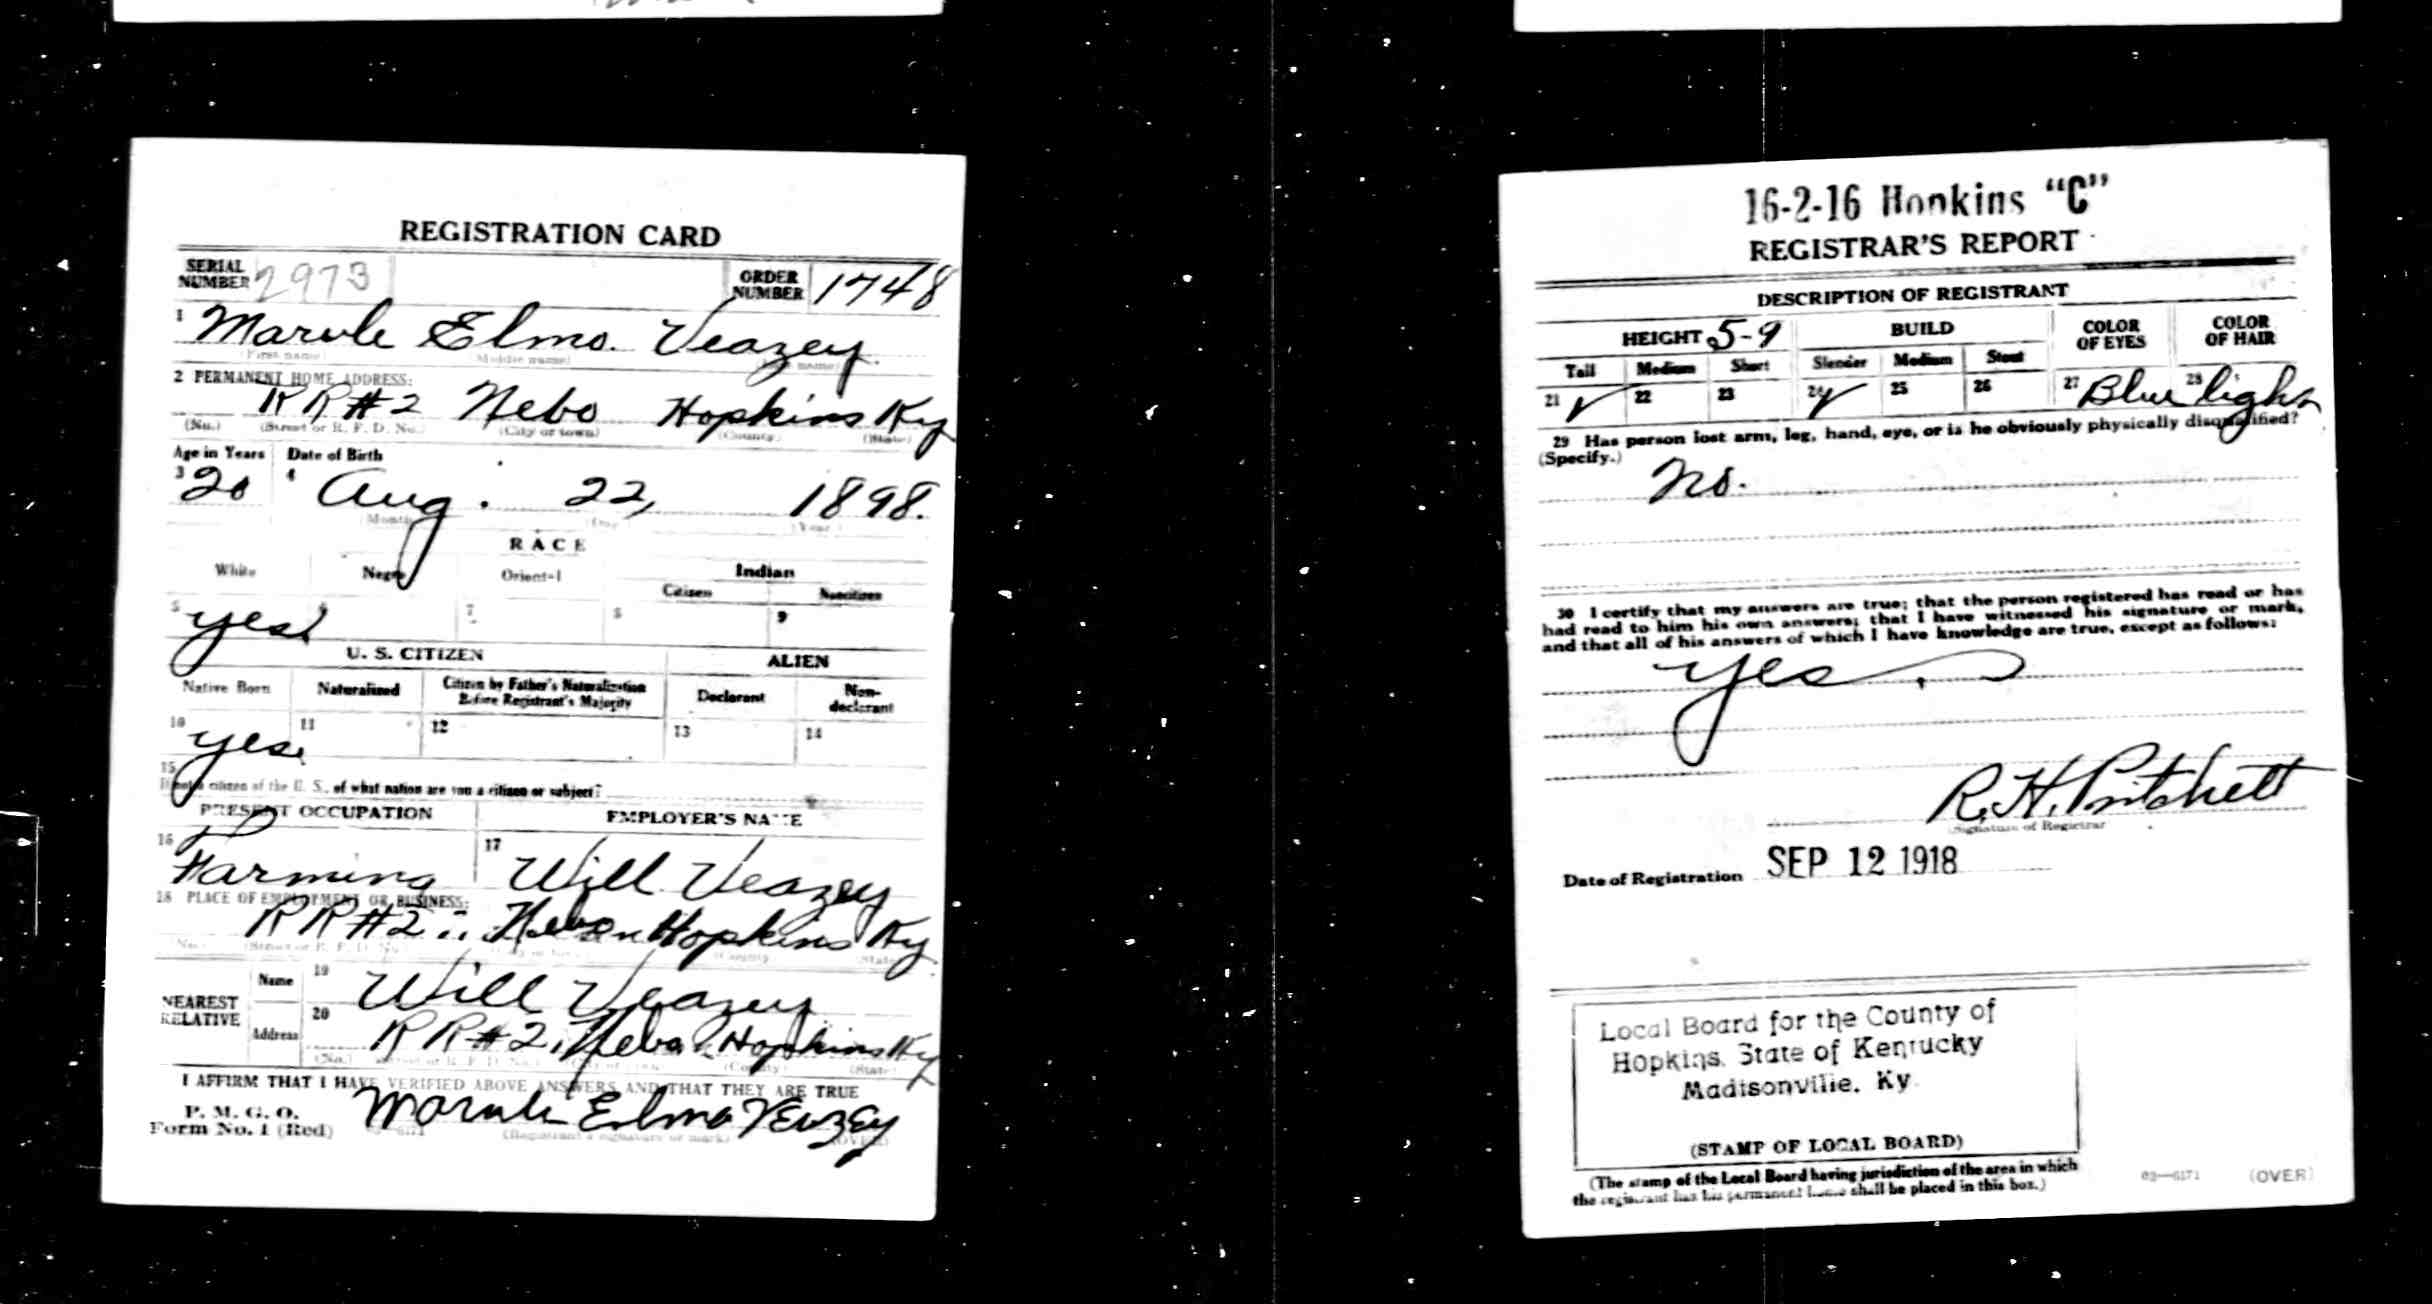 REGISTRATION CARD
SERIAL NUMBER 2973 ORDER NUMBER 1748
1 Marvle Elmo. Veazey.
(First name) (Middle name) (Last name)
2 PERMANENT HOME ADDRESS:
RR#2 Nebo Hopkins Ky
(No.) (Street or R. F. D. No.) (City or town) (County) (State)
Age in Years Date of Birth
3 20 4 Aug. 22, 1898.
(Month) (Day) (Year)
RACE
White Negro Oriental Indian
Citizen Noncitizen
5 yes 6 7 8 9
U. S. CITIZEN ALIEN
Native Born Naturalized Citizen by Father's Naturalization Before Registrant's Majority Declarant Non-declarant
10 yes. 11 12 13 14
15
If not a citizen of the U. S., of what nation are you a citizen or subject?
PRESENT OCCUPATION EMPLOYER'S NAME
16 Farming 17 Will Veazey
18 PLACE OF EMPLOYMENT OR BUSINESS:
RR#2 Nebo Hopkins Ky
(No.) (Street or R. F. D. No.) (City or town) (County) (State)
NEAREST RELATIVE
Name 19 Will Veazey
Address 20 RR#2, Nebo Hopkins Ky
(No.) (Street or R. F. D. No.) (City or town) (County) (State)
I AFFIRM THAT I HAVE VERIFIED ABOVE ANSWERS AND THAT THEY ARE TRUE
P. M. G. O.
Form No. 1 (Red) Marvle Elmo Veazey
03—6171 (Registrant's signature or mark) (OVER)
16-2-16 Hopkins "C"
REGISTRAR'S REPORT
DESCRIPTION OF REGISTRANT
HEIGHT 5-9 BUILD COLOR OF EYES COLOR OF HAIR
Tall Medium Short Slender Medium Stout
21 ✓ 22 23 24 ✓ 25 26 27 Blue 28 light
29 Has person lost arm, leg, hand, eye, or is he obviously physically disqualified?
(Specify.)
No.
30 I certify that my answers are true; that the person registered has read or has
had read to him his own answers; that I have witnessed his signature or mark,
and that all of his answers of which I have knowledge are true, except as follows:
yes.
R. H. Pritchett
(Signature of Registrar)
Date of Registration SEP 12 1918
Local Board for the County of
Hopkins, State of Kentucky
Madisonville, Ky
(STAMP OF LOCAL BOARD)
(The stamp of the Local Board having jurisdiction of the area in which
the registrant has his permanent home shall be placed in this box.)
03—6171 (OVER)